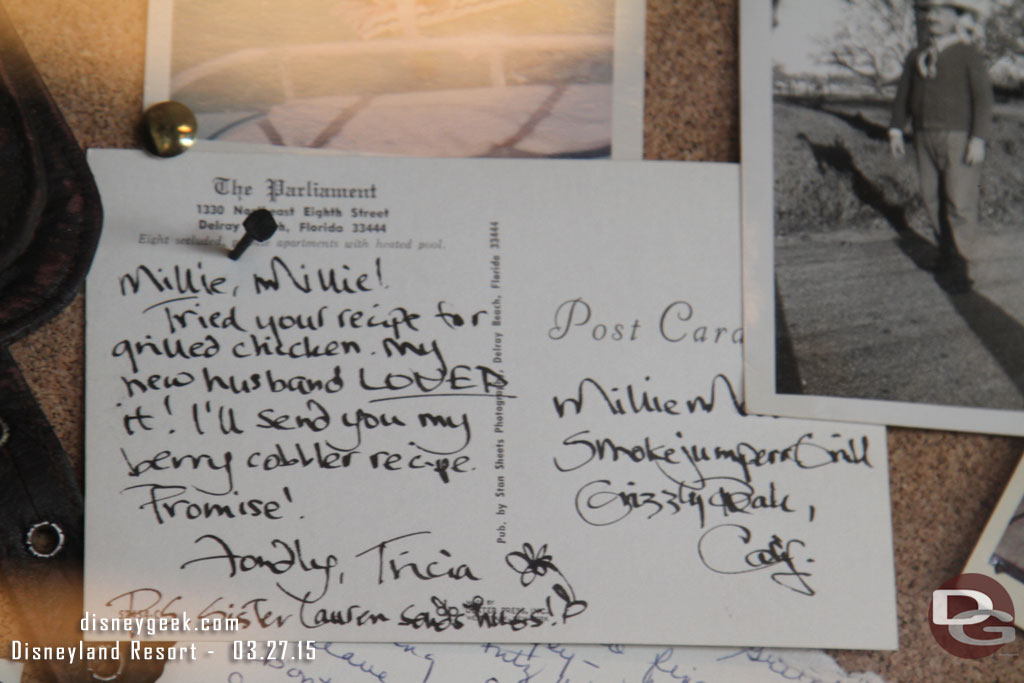 The Parliament
1330 Northeast Eighth Street
Delray Beach, Florida 33444
Eight secluded, apartments with heated pool.
Millie, Millie!
Tried your recipe for
grilled chicken. My
new husband LOVED
it! I'll send you my
berry cobbler recipe.
Promise!
Fondly, Tricia
P.S. Sister Lauren sends hugs!
Pub. by Stan Sheets Photography, Delray Beach, Florida 33444
Post Card
Millie M
Smokejumpers Grill
Grizzly Peak,
Calif.
disneygeek.com
Disneyland Resort - 03.27.15
DG